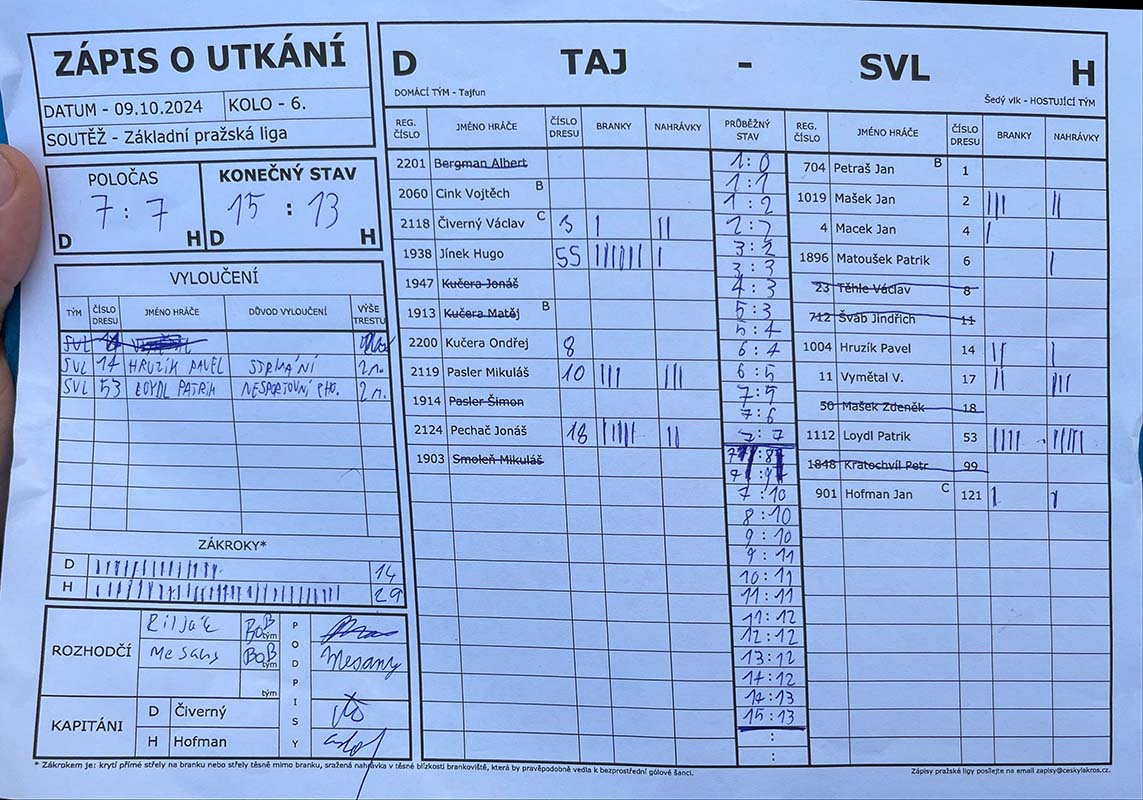 ZÁPIS O UTKÁNÍ
DATUM - 09.10.2024 KOLO - 6.
SOUTĚŽ - Základní pražská liga
POLOČAS KONEČNÝ STAV
7 : 7 15 : 13
D H D H
VYLOUČENÍ
TÝM ČÍSLO DRESU JMÉNO HRÁČE DŮVOD VYLOUČENÍ VÝŠE TRESTU
SVL
SVL 14 HRUZÍK PAVEL 2m.
SVL 53 LOYDL PATRIK NESPORTOVNÍ CHO. 2m.
ZÁKROKY*
D 14
H 29
ROZHODČÍ
BOB tým
BOB tým
Mesany
tým
PODPISY
KAPITÁNI
D Čiverný
H Hofman
D TAJ - SVL H
DOMÁCÍ TÝM - Tajfun Šedý vlk - HOSTUJÍCÍ TÝM
REG. ČÍSLO JMÉNO HRÁČE ČÍSLO DRESU BRANKY NAHRÁVKY PRŮBĚŽNÝ STAV REG. ČÍSLO JMÉNO HRÁČE ČÍSLO DRESU BRANKY NAHRÁVKY
2201 Bergman Albert
2060 Cink Vojtěch B
2118 Čiverný Václav C 3 | ||
1938 Jínek Hugo 55 |
1947 Kučera Jonáš
1913 Kučera Matěj B
2200 Kučera Ondřej 8
2119 Pasler Mikuláš 10 ||| |||
1914 Pasler Šimon
2124 Pechač Jonáš 18 ||||| ||
1903 Smoleň Mikuláš
1:0
1:1
1:2
2:2
3:2
3:3
4:3
5:3
5:4
6:4
6:5
7:5
7:6
7:7
7:8
7:9
7:10
8:10
9:10
9:11
10:11
11:11
11:12
12:12
13:12
14:12
14:13
15:13
:
:
704 Petraš Jan B 1
1019 Mašek Jan 2 ||| ||
4 Macek Jan 4 |
1896 Matoušek Patrik 6 |
23 Těhle Václav 8
712 Šváb Jindřich 11
1004 Hruzík Pavel 14 || |
11 Vymětal V. 17 ||
50 Mašek Zdeněk 18
1112 Loydl Patrik 53 ||||
1848 Kratochvíl Petr 99
901 Hofman Jan C 121 | |
* Zákrokem je: krytí přímé střely na branku nebo střely těsně mimo branku, sražená nahrávka v těsné blízkosti brankoviště, která by pravěpodobně vedla k bezprostřední gólové šanci.
Zápisy pražské ligy posílejte na email zapisy@ceskylakros.cz.